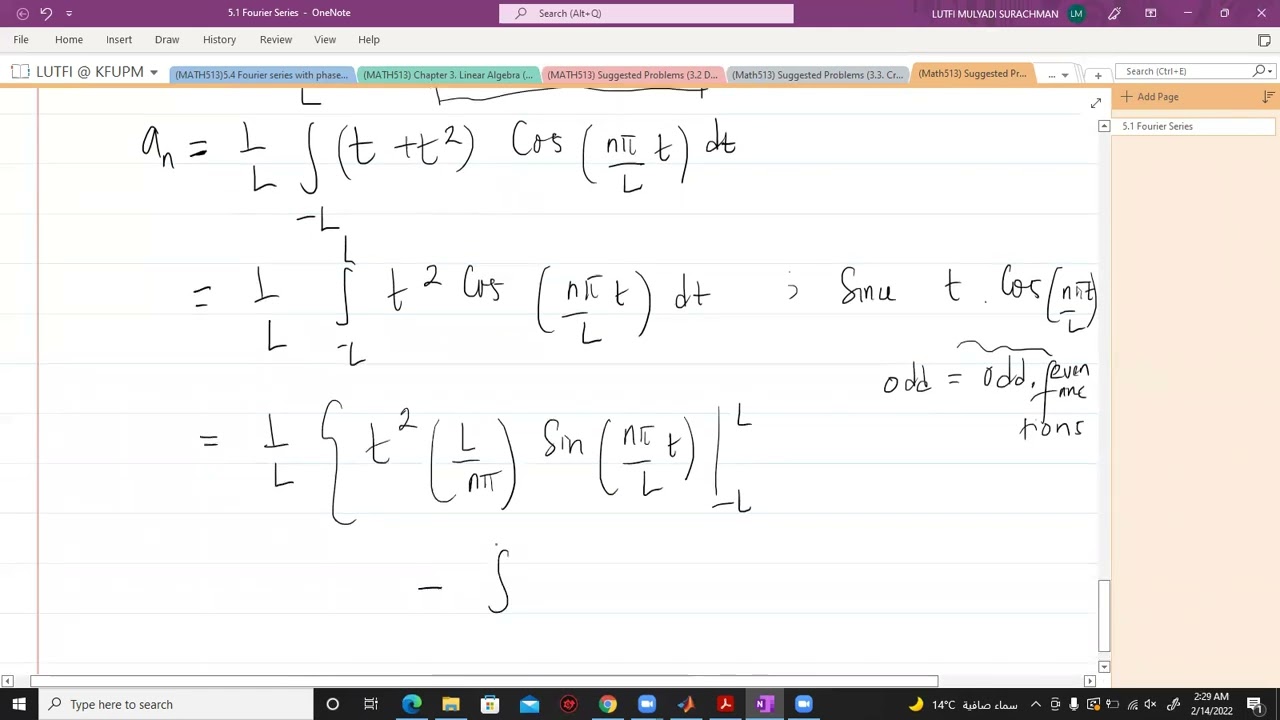 5.1 Fourier Series - OneNote
Search (Alt+Q)
LUTFI MULYADI SURACHMAN
LM
File Home Insert Draw History Review View Help
LUTFI @ KFUPM
(MATH513)5.4 Fourier series with phase...
(MATH513) Chapter 3. Linear Algebra (...
(MATH513) Suggested Problems (3.2 D...
(MATH513) Suggested Problems (3.3. Cr...
(Math513) Suggested Pr...
...
Search (Ctrl+E)
Add Page
5.1 Fourier Series
L
aₙ = 1/L ∫ (t + t²) Cos (nπ/L t) dt
-L
L
= 1/L ∫ t² Cos (nπ/L t) dt ; Since t . Cos (nπt/L)
-L
odd = odd. even
func
tions
= 1/L { t² (L/nπ) Sin (nπ/L t) | L
-L
- ∫
Type here to search
14°C سماء صافية
2:29 AM
2/14/2022